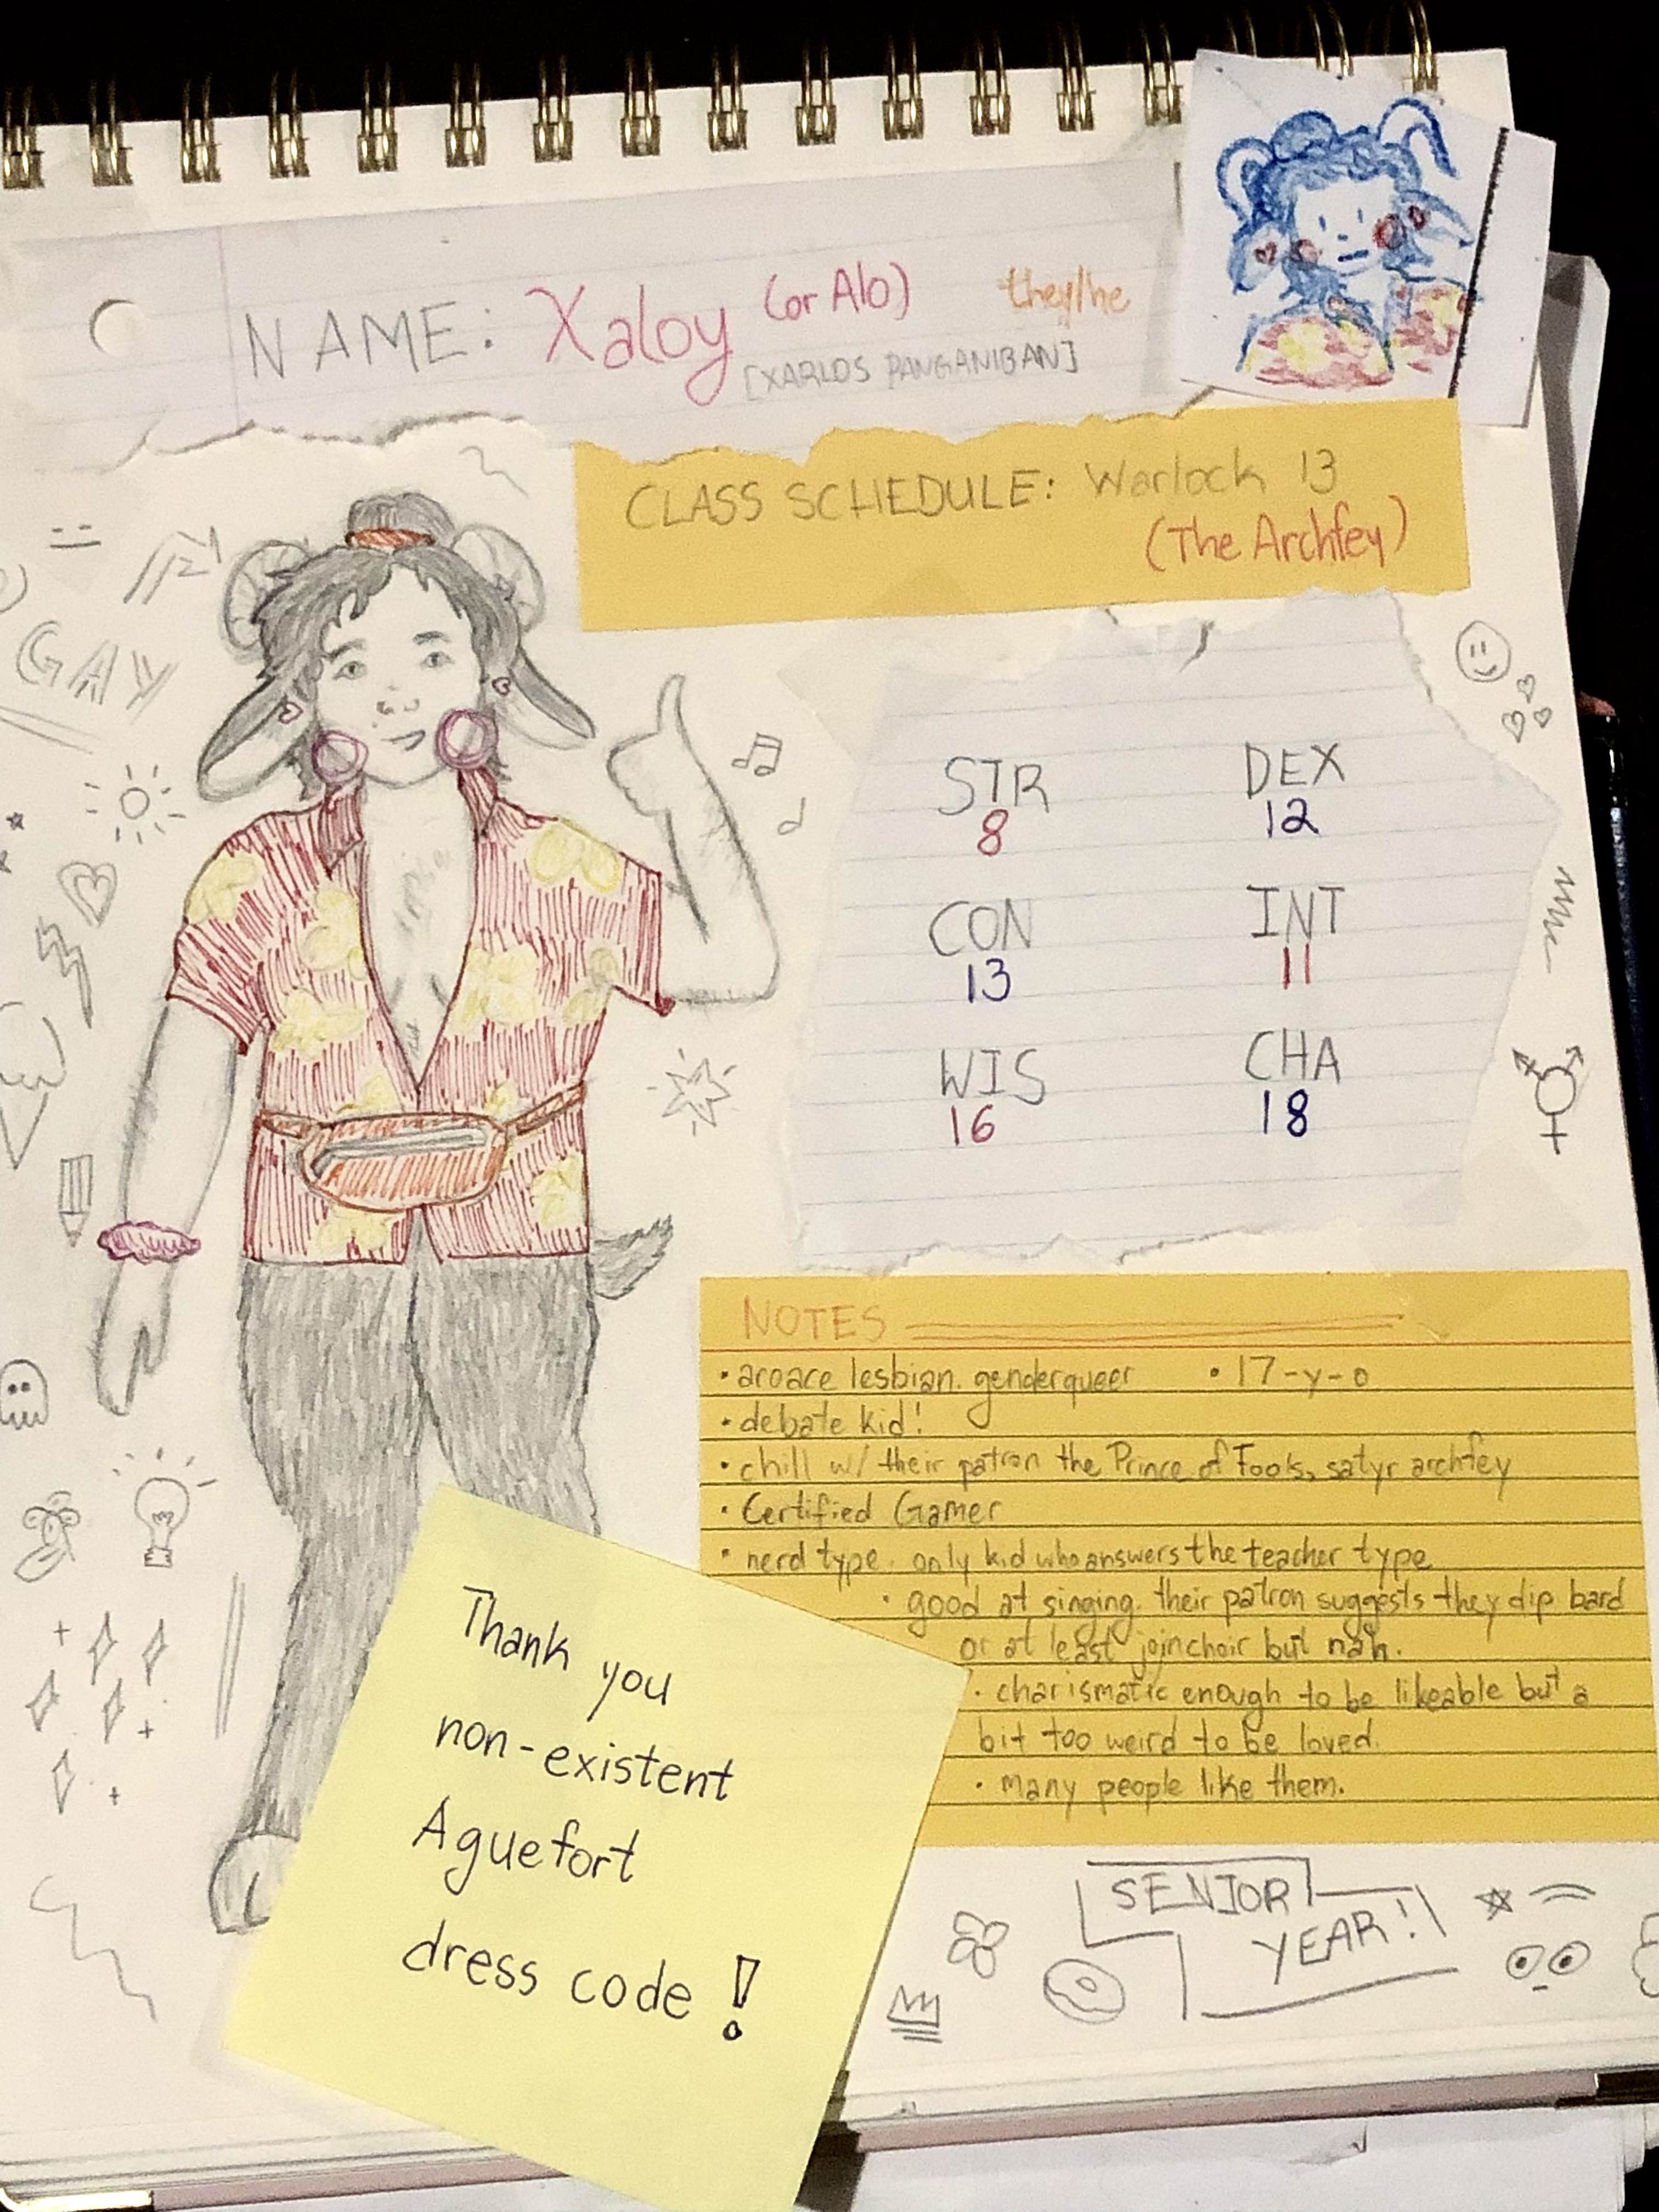 NAME: Xaloy (or Alo) they/he
[XARLOS PANGANIBAN]
CLASS SCHEDULE: Warlock 13
(The Archfey)
GAY
STR DEX
8 12
CON INT
13 11
WIS CHA
16 18
NOTES
• aroace lesbian. genderqueer • 17-y-o
• debate kid!
• chill w/ their patron the Prince of Fools, satyr archfey
• Certified Gamer
• nerd type. only kid who answers the teacher type
• good at singing. their patron suggests they dip bard
or at least join choir but nah.
• charismatic enough to be likeable but a
bit too weird to be loved.
• many people like them.
Thank you
non-existent
Aguefort
dress code!
SENIOR
YEAR!